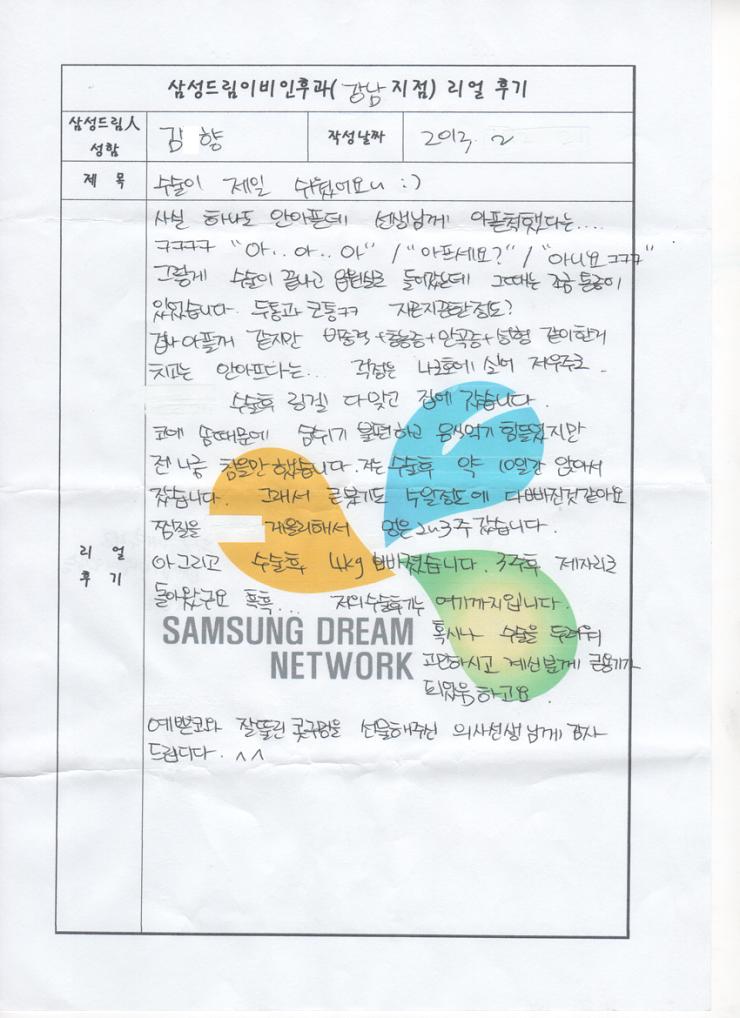 삼성드림이비인후과( 강남 지점) 리얼 후기
삼성드림人 성함
김 향
작성날짜
2013. 2
제 목
수술이 제일 쉬웠어요 :)
리 얼
후 기
사실 하나도 안아픈데 선생님께 아픈척했다는....
ㅋㅋㅋㅋ "아..아..아" / "아프세요?" / "아니요ㅋㅋㅋ"
그렇게 수술이 끝나고 입원실로 들어갔는데 그때는 조금 통증이
있었습니다. 두통과 코통ㅋㅋ 지끈지끈한정도?
겁나 아플꺼 같지만 비중격+축농증+만곡증+성형 같이한거
치고는 안아프다는... 걱정은 나로호에 실어 저우주로.
수술후 링겔 다맞고 집에 갔습니다.
코에 솜때문에 숨쉬기 불편하고 음식먹기 힘들었지만
전 나름 참을만 했습니다. 저는 수술후 약 10일간 앉아서
잤습니다. 그래서 큰붓기도 수일정도에 다빠진것같아요
찜질을 게을리해서 멍은 2~3주 갔습니다.
아 그리고 수술후 4kg 빠졌습니다. 3주후 제자리로
돌아왔구요 흑흑... 저의수술후기는 여기까지입니다.
혹시나 수술을 두려워
고민하시고 계신분께 큰용기가
되었음 하고요
예쁜코와 잘뚫린 콧구멍을 선물해주신 의사선생님께 감사
드립니다. ^^
SAMSUNG DREAM
NETWORK